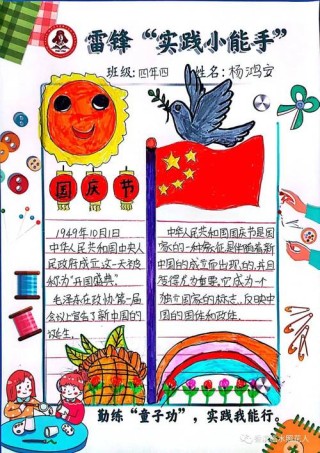 雷锋“实践小能手”
班级:四年四 姓名:杨鸿宝
国庆节
1949年10月1日
中华人民共和国中央人
民政府成立,这一天被
称为“开国盛典”。
毛泽东在政协第一届
会议上宣告了新中国的
诞生。
中华人民共和国国庆节是国
家的一种象征,是伴随着新
中国的成立而出现的,并且
变得尤为重要。它成为一个
独立国家的标志,反映中
国的国体和政体。
勤练“童子功”,实践我能行。